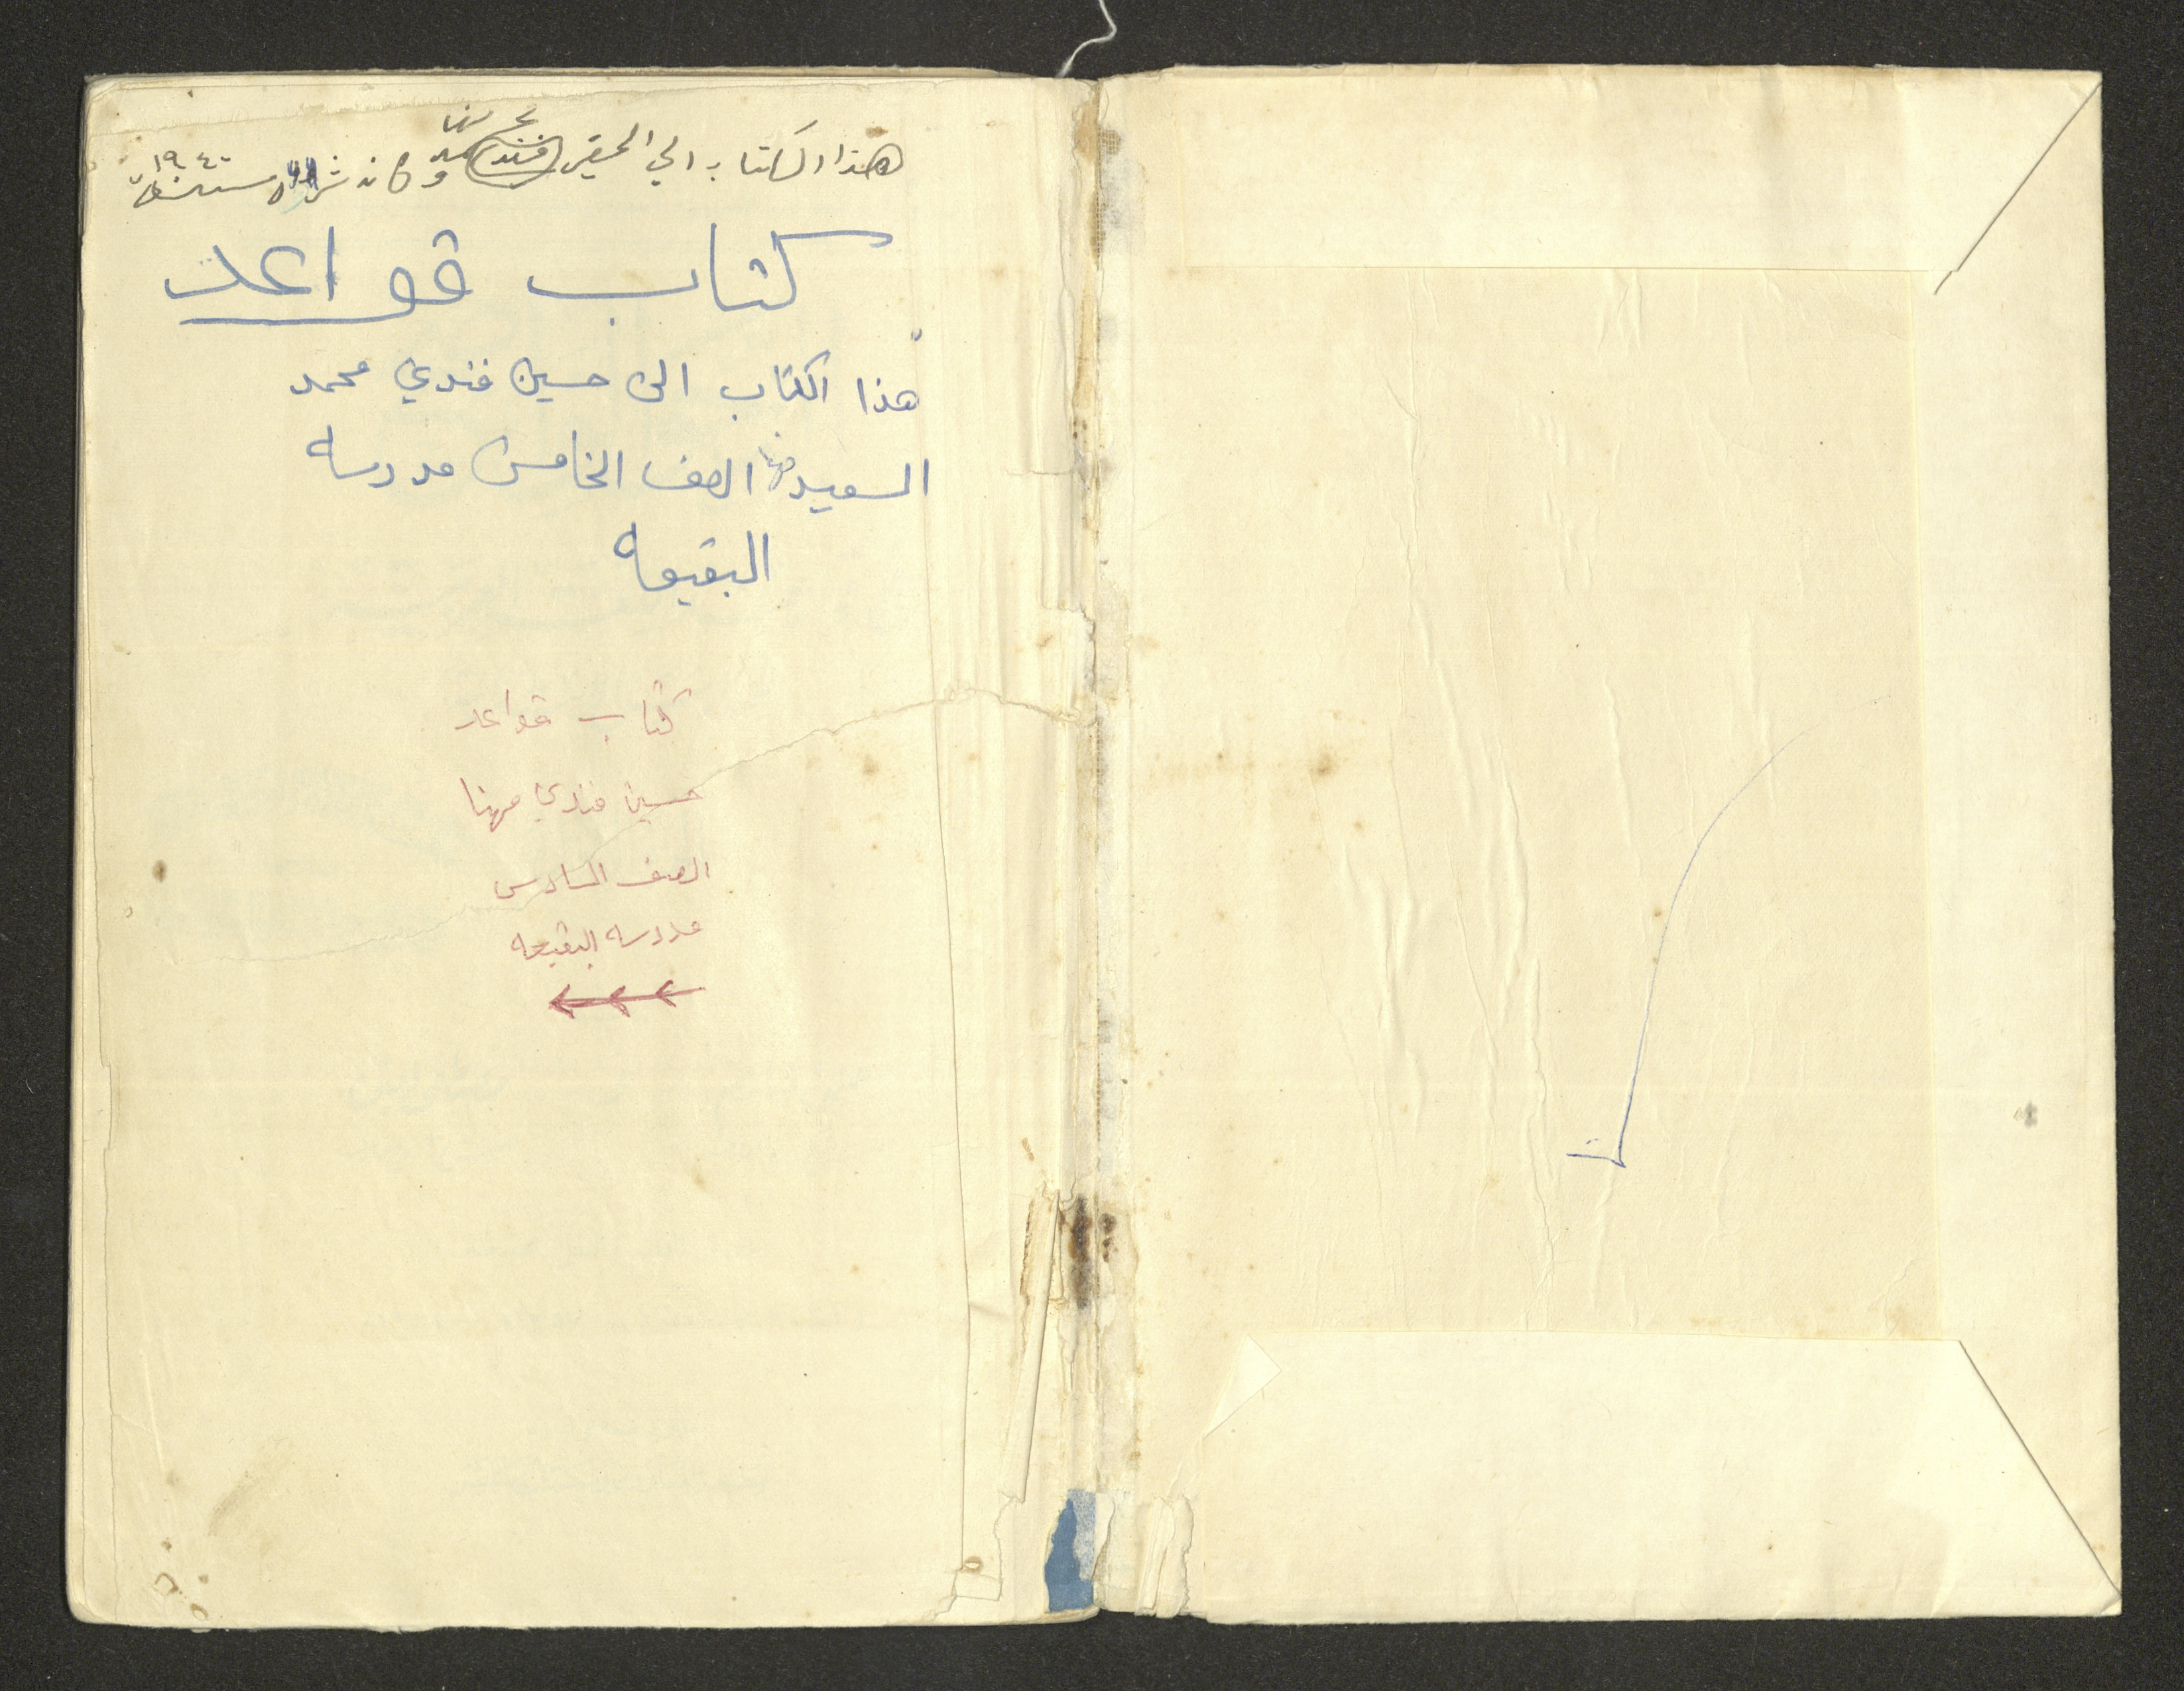 هذا الكتاب الي الحقير فندي محمد مهنا وكان شراه سنة ١٩٤٠
كتاب قواعد
هذا الكتاب الى حسين فندي محمد
السعيد مهنا الصف الخامس مدرسه
البقيعه
كتاب قواعد
حسين فندي مهنا
الصف السادس
مدرسه البقيعه